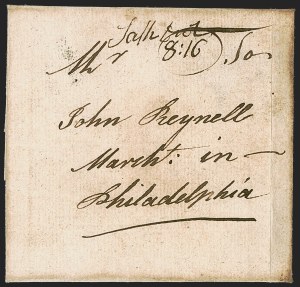 8:16
Mr
John Reynell
Marcht: in
Philadelphia